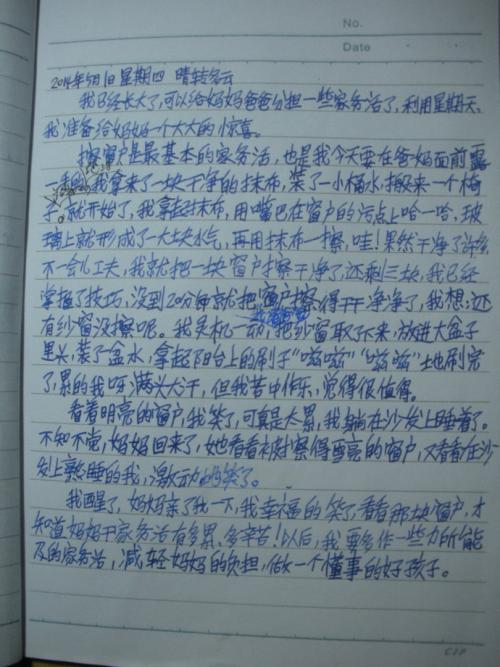 No.
Date
2014年5月1日 星期四 晴转多云
我已经长大了,可以给妈妈爸爸分担一些家务活了,利用星期天,
我准备给妈妈一个大大的惊喜。
擦窗户是最基本的家务活,也是我今天要在爸妈面前露
一手的。我拿来了一块干净的抹布,装了一小桶水,搬来一个椅
子。就开始了,我拿起抹布,用嘴巴在窗户的污点上哈一哈,玻
璃上就形成了一大块水气,再用抹布一擦,哇!果然干净了许多
不一会儿工夫,我就把一块窗户擦干净了,还剩三块,我已经
掌握了技巧,没到20分钟就把窗户擦得干干净净了,我想:还
有纱窗没擦呢。我灵机一动,把纱窗取了下来,放进大盆子
里头,装了盆水,拿起阳台上的刷子“嗞嗞”“嗞嗞”地刷完
了,累的我呀满头大汗,但我苦中作乐,觉得很值得。
看着明亮的窗户,我笑了,可真是太累,我躺在沙发上睡着了。
不知不觉,妈妈回来了,她看看被擦得雪亮的窗户,又看看在沙
发上熟睡的我,激动的笑了。
我醒了,妈妈亲了我一下,我幸福的笑了看看那块窗户,才
知道妈妈干家务活有多累、多辛苦!以后,我要多作一些力所能
及的家务活,减轻妈妈的负担,做一个懂事的好孩子。